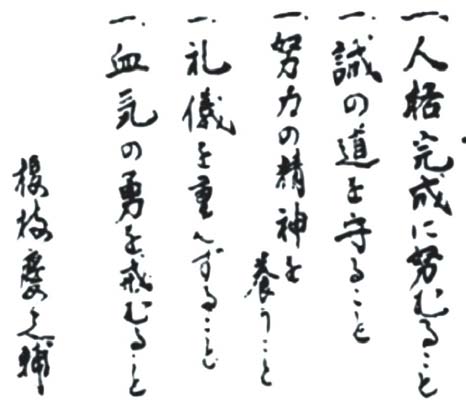 一、人格完成に努むること
一、誠の道を守ること
一、努力の精神を養うこと
一、礼儀を重んずること
一、血気の勇を戒むること
榎枝慶之輔